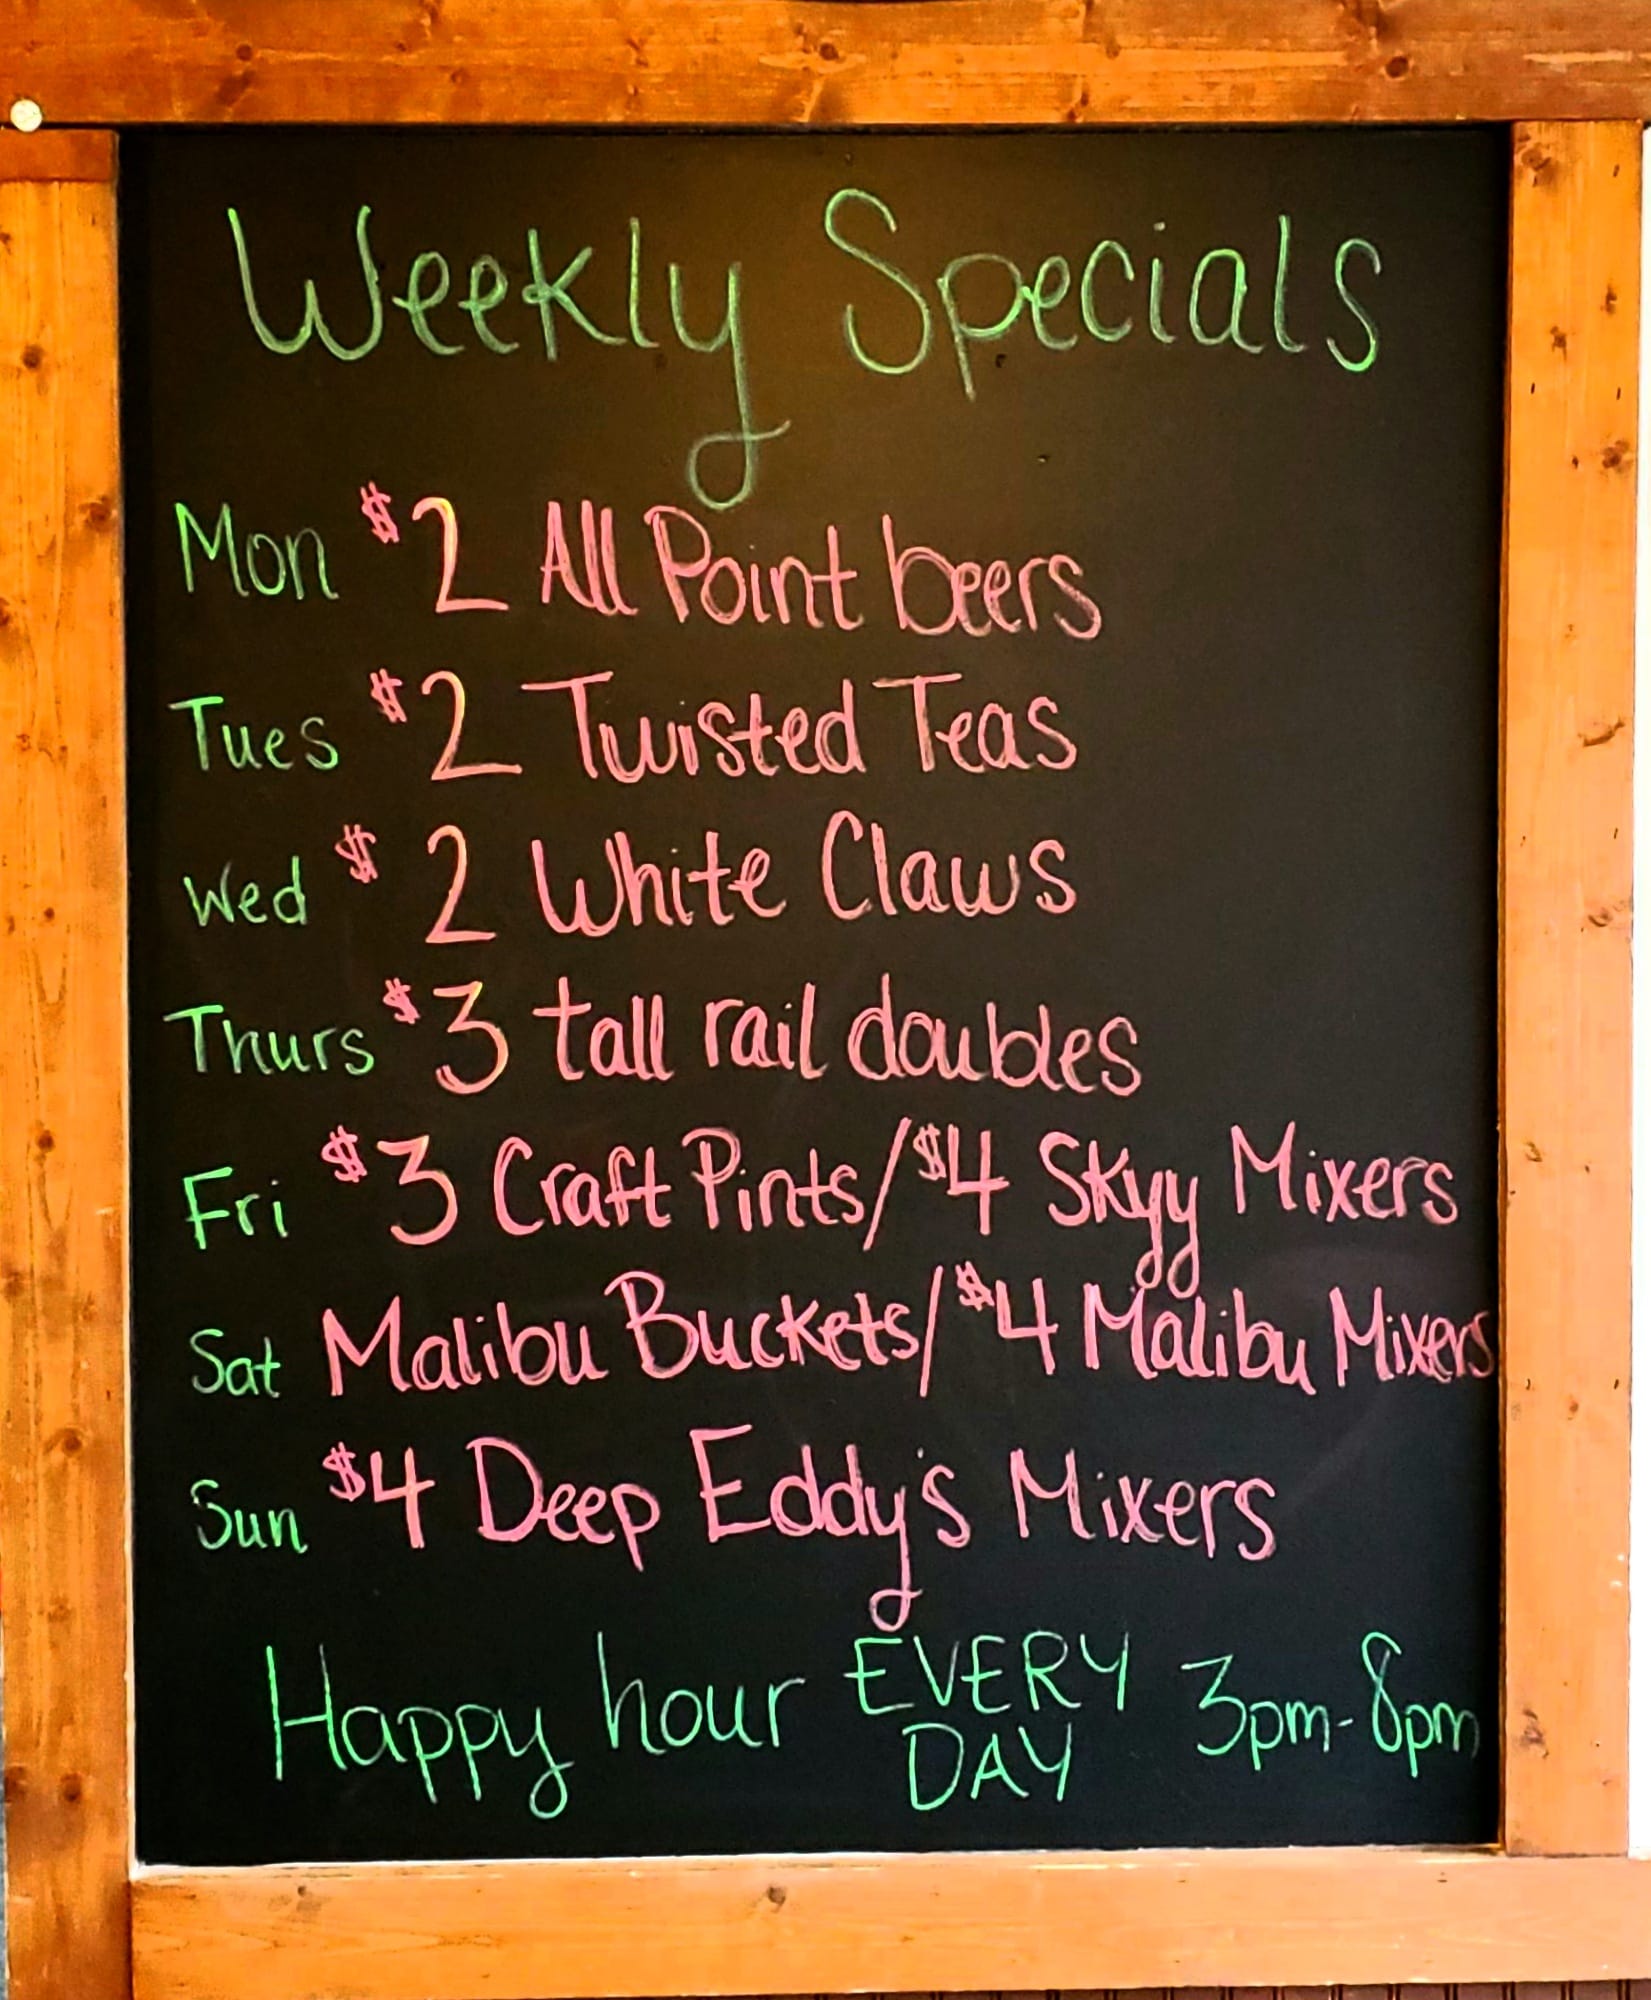 Weekly Specials
Mon $2 All Point beers
Tues $2 Twisted Teas
Wed $2 White Claws
Thurs $3 tall rail doubles
Fri $3 Craft Pints/$4 Skyy Mixers
Sat Malibu Buckets/$4 Malibu Mixers
Sun $4 Deep Eddy's Mixers
Happy hour EVERY DAY 3pm-8pm